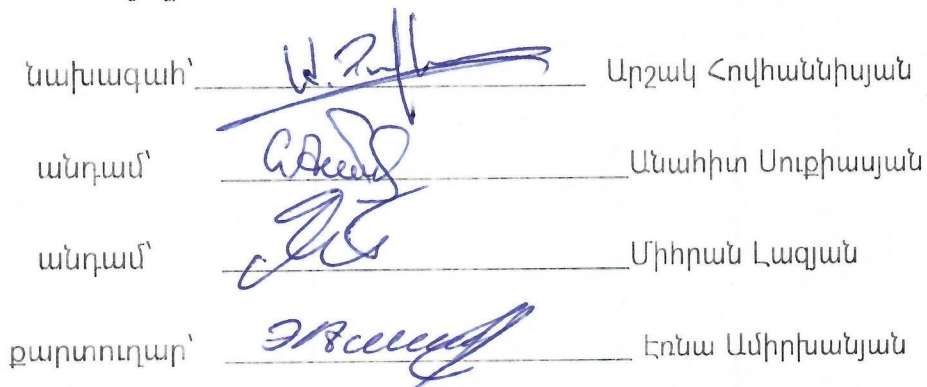 նախագահ՝ Արշակ Հովհաննիսյան
անդամ՝ Անահիտ Սուքիասյան
անդամ՝ Միհրան Լազյան
քարտուղար՝ Էռնա Ամիրխանյան